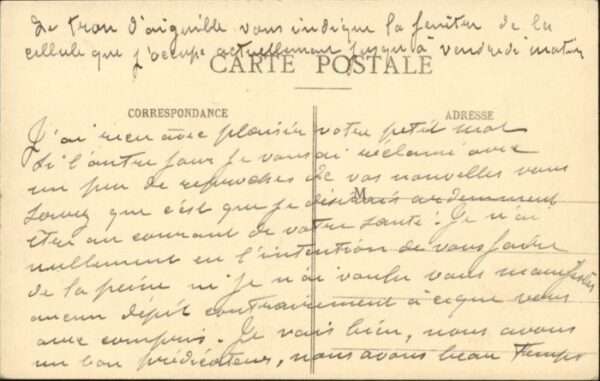 Le trou d'aiguille vous indique la fenêtre de la
cellule que j'occupe actuellement jusqu'à vendredi matin
CARTE POSTALE
CORRESPONDANCE
ADRESSE
J'ai reçu avec plaisir votre petit mot
Si l'autre jour je vous ai réclamé avec
un peu de reproches de vos nouvelles vous
savez que c'est que je désirais ardemment
M
être au courant de votre santé. Je n'ai
nullement eu l'intention de vous faire
de la peine ni je n'ai voulu vous manifester
aucun dépit contrairement à ce que vous
avez compris. Je vais bien, nous avons
un bon prédicateur, nous avons beau temps